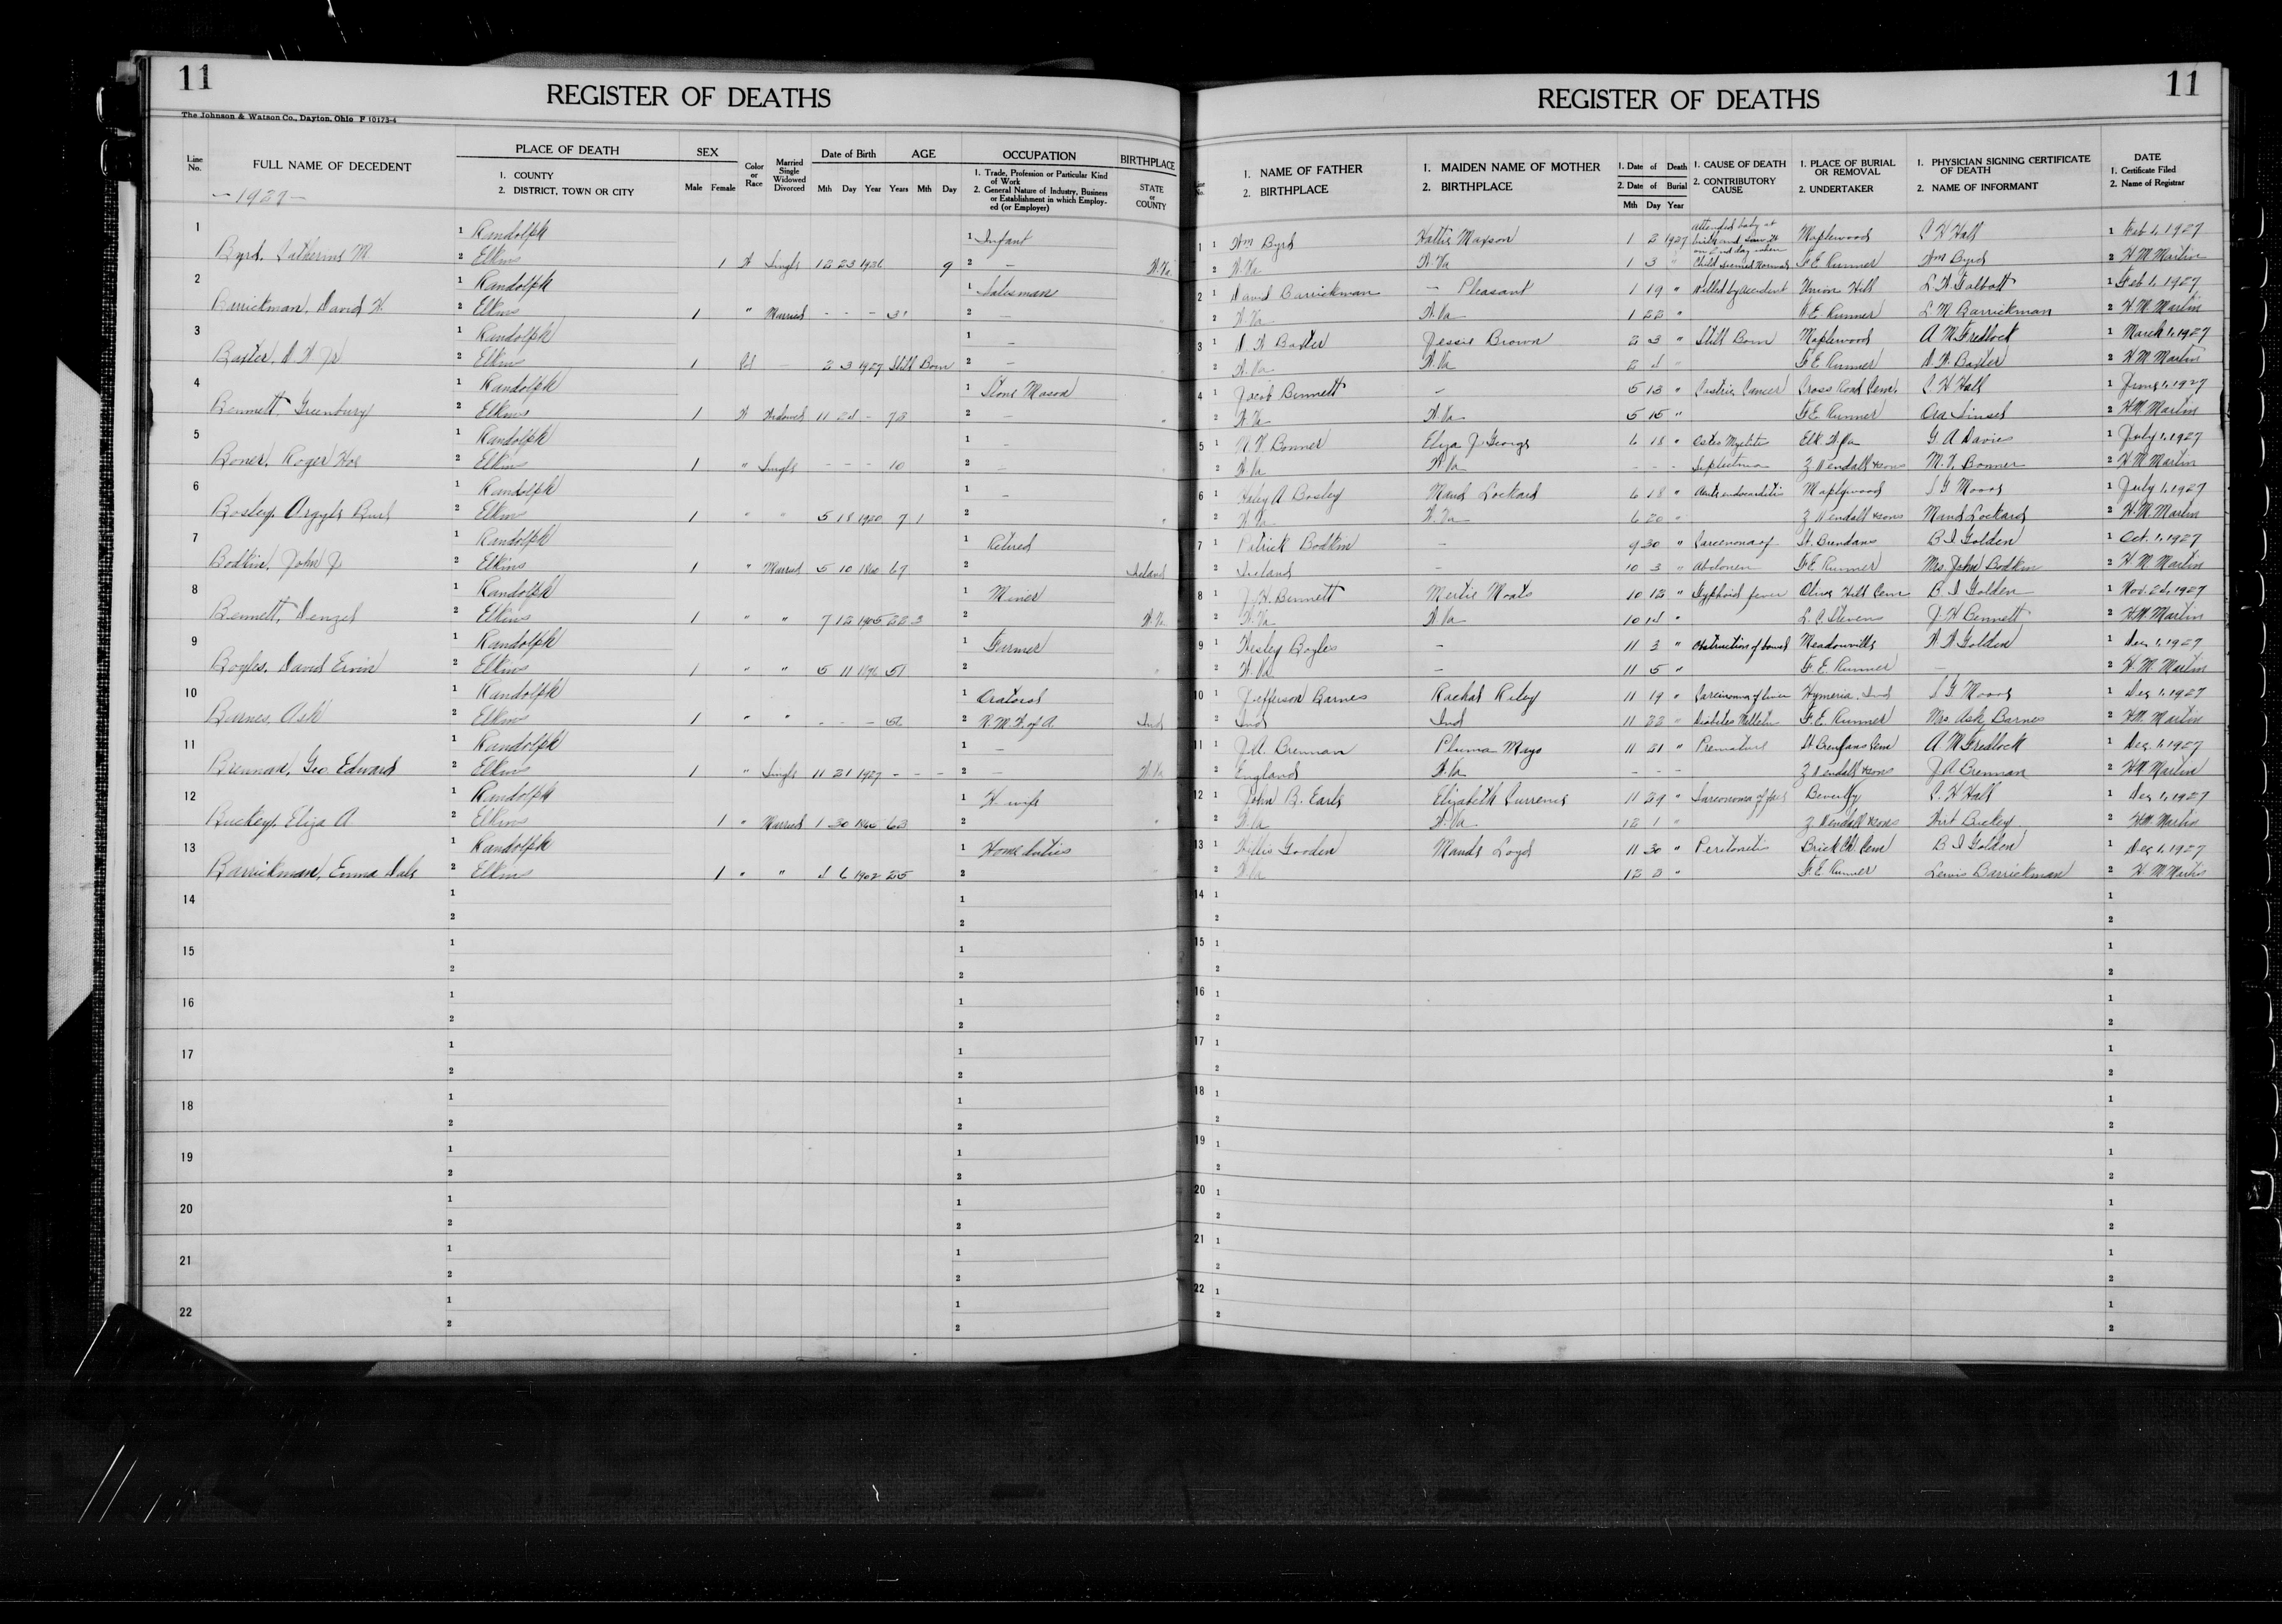 11
REGISTER OF DEATHS
The Johnson & Watson Co., Dayton, Ohio F 10173-4
Line No. FULL NAME OF DECEDENT PLACE OF DEATH 1. COUNTY 2. DISTRICT, TOWN OR CITY SEX Male Female Color or Race Married Single Widowed Divorced Date of Birth Mth Day Year AGE Years Mth Day OCCUPATION 1. Trade, Profession or Particular Kind of Work 2. General Nature of Industry, Business or Establishment in which Employed (or Employer) BIRTHPLACE STATE or COUNTY
- 1927 -
1 1 Randolph 1 Infant
Byrd, Catherine M 2 Elkins 1 W Single 12 23 1926 9 2 - W.Va
2 1 Randolph 1 Salesman
Barrickman, David H. 2 Elkins 1 " Married - - - 31 2 - "
3 1 Randolph 1 -
Baxter, Jr 2 Elkins 1 Col - 2 3 1927 Still Born 2 - "
4 1 Randolph 1 Stone Mason
Bennett Greenbury 2 Elkins 1 W Widowed 11 24 - 73 2 - "
5 1 Randolph 1 -
Boner, Roger 2 Elkins 1 " Single - - - 10 2 - "
6 1 Randolph 1 -
Bosley, Argyle 2 Elkins 1 " " 5 18 1920 7 1 2 "
7 1 Randolph 1 Retired
Bodkin, John J. 2 Elkins 1 " Married 5 10 1860 67 2 Ireland
8 1 Randolph 1 Miner
Bennett, Denzel 2 Elkins 1 " " 7 12 1905 22 3 2 W.Va
9 1 Randolph 1 Farmer
Boyles, David Ervin 2 Elkins 1 " " 5 11 1876 51 2 "
10 1 Randolph 1
Barnes, Ask 2 Elkins 1 " " - - - 56 2 U.M.W. of A Ind
11 1 Randolph 1 -
Brennan, Geo. Edward 2 Elkins 1 " Single 11 21 1927 - - - 2 - W.Va
12 1 Randolph 1 H. wife
Buckey, Eliza A 2 Elkins 1 " Married 1 30 63 2 "
13 1 Randolph 1 Home duties
Barrickman, Emma Dale 2 Elkins 1 " " 4 6 1902 25 2
14 1 1
2 2
15 1 1
2 2
16 1 1
2 2
17 1 1
2 2
18 1 1
2 2
19 1 1
2 2
20 1 1
2 2
21 1 1
2 2
22 1 1
2 2
REGISTER OF DEATHS
11
Line No. 1. NAME OF FATHER 2. BIRTHPLACE 1. MAIDEN NAME OF MOTHER 2. BIRTHPLACE 1. Date of Death 2. Date of Burial Mth Day Year 1. CAUSE OF DEATH 2. CONTRIBUTORY CAUSE 1. PLACE OF BURIAL OR REMOVAL 2. UNDERTAKER 1. PHYSICIAN SIGNING CERTIFICATE OF DEATH 2. NAME OF INFORMANT DATE 1. Certificate Filed 2. Name of Registrar
1 1 Wm Byrd Hattie Maxson 1 2 1927 attended baby at birth and saw it on 2nd day when Maplewood C H Hall 1 Feb 1, 1927
2 W.Va W.Va 1 3 " Child seemed Normal F.E. Runner Wm Byrd 2 H M Martin
2 1 David Barrickman - Pleasant 1 19 " Killed by accident Union Hill L. W. Talbott 1 Feb. 1, 1927
2 W.Va W.Va 1 22 " F.E. Runner L M Barrickman 2 H. M. Martin
3 1 Baxter Jessie Brown 2 3 " Still Born Maplewood A M Fredlock 1 March 1, 1927
2 W.Va W.Va 2 4 " F.E. Runner Baxter 2 H M Martin
4 1 Jacob Bennett - 5 13 " Gastric Cancer Cross Road Cem. C H Hall 1 June 1, 1927
2 W.Va W.Va 5 15 " F.E. Runner Ora Linsel 2 H.M. Martin
5 1 Bonner Eliza J. George 6 18 " Osteo Myelitis Elk. W.Va G A Davies 1 July 1, 1927
2 W.Va W.Va - - - Z. Kendall & sons Bonner 2 H M Martin
6 1 Haley A Bosley Maud Lockard 6 18 " Acute endocarditis Maplewood S G Moore 1 July 1, 1927
2 W.Va W.Va 6 20 " Z. Kendall & sons Maud Lockard 2 H. M. Martin
7 1 Patrick Bodkin - 9 30 " of St. Brendans B I Golden 1 Oct. 1, 1927
2 Ireland - 10 3 " Abdomen F.E. Runner Mrs. John Bodkin 2 H M Martin
8 1 J. H. Bennett Mertie Moats 10 12 " Typhoid fever Olive Hill Cem B. I Golden 1 Nov. 1927
2 W.Va W.Va 10 14 " L. C. Stevens J. H Bennett 2 H.M. Martin
9 1 Wesley Boyles - 11 3 " Obstruction of bowel Meadowville W W Golden 1 Dec 1, 1927
2 W.Va - 11 5 " F. E. Runner - 2 H. M. Martin
10 1 Jefferson Barnes Rachel Riley 11 19 " Carcinoma of liver Hymeria. Ind S G Moore 1 Dec 1, 1927
2 Ind Ind 11 22 " Diabetes F. E. Runner Mrs Ask Barnes 2 H.M. Martin
11 1 J. A. Brennan Pluma Mayo 11 21 " Premature St Brendans Cem A M Fredlock 1 Dec. 1, 1927
2 England W.Va - - - Z Kendall & sons J A Brennan 2 H.M. Martin
12 1 John B. Earle Elizabeth Currence 11 29 " of Beverly C. H Hall 1 Dec 1, 1927
2 W.Va W.Va 12 1 " Z. Kendall & sons Buckey 2 H.M. Martin
13 1 Willis Gooden Maude Loyd 11 30 " Peritonitis Brick Ch. Cem B I Golden 1 Dec 1, 1927
2 W.Va 12 2 " F. E. Runner Lewis Barrickman 2 H. M Martin
14 1 1
2 2
15 1 1
2 2
16 1 1
2 2
17 1 1
2 2
18 1 1
2 2
19 1 1
2 2
20 1 1
2 2
21 1 1
2 2
22 1 1
2 2